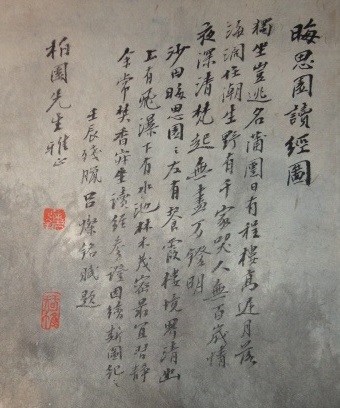 晦思園讀經圖
獨坐豈逃名蒲團日有程樓高月落
海闊任潮生野有千家哭人無百歲情
夜深清梵起無盡万燈明
沙田晦思園之左有餐霞樓境界清幽
上有飛瀑下有水池林木茂密最宜習靜
余常焚香坐讀經參證因圖
壬辰殘臘呂燦銘賦題
柏園先生雅正